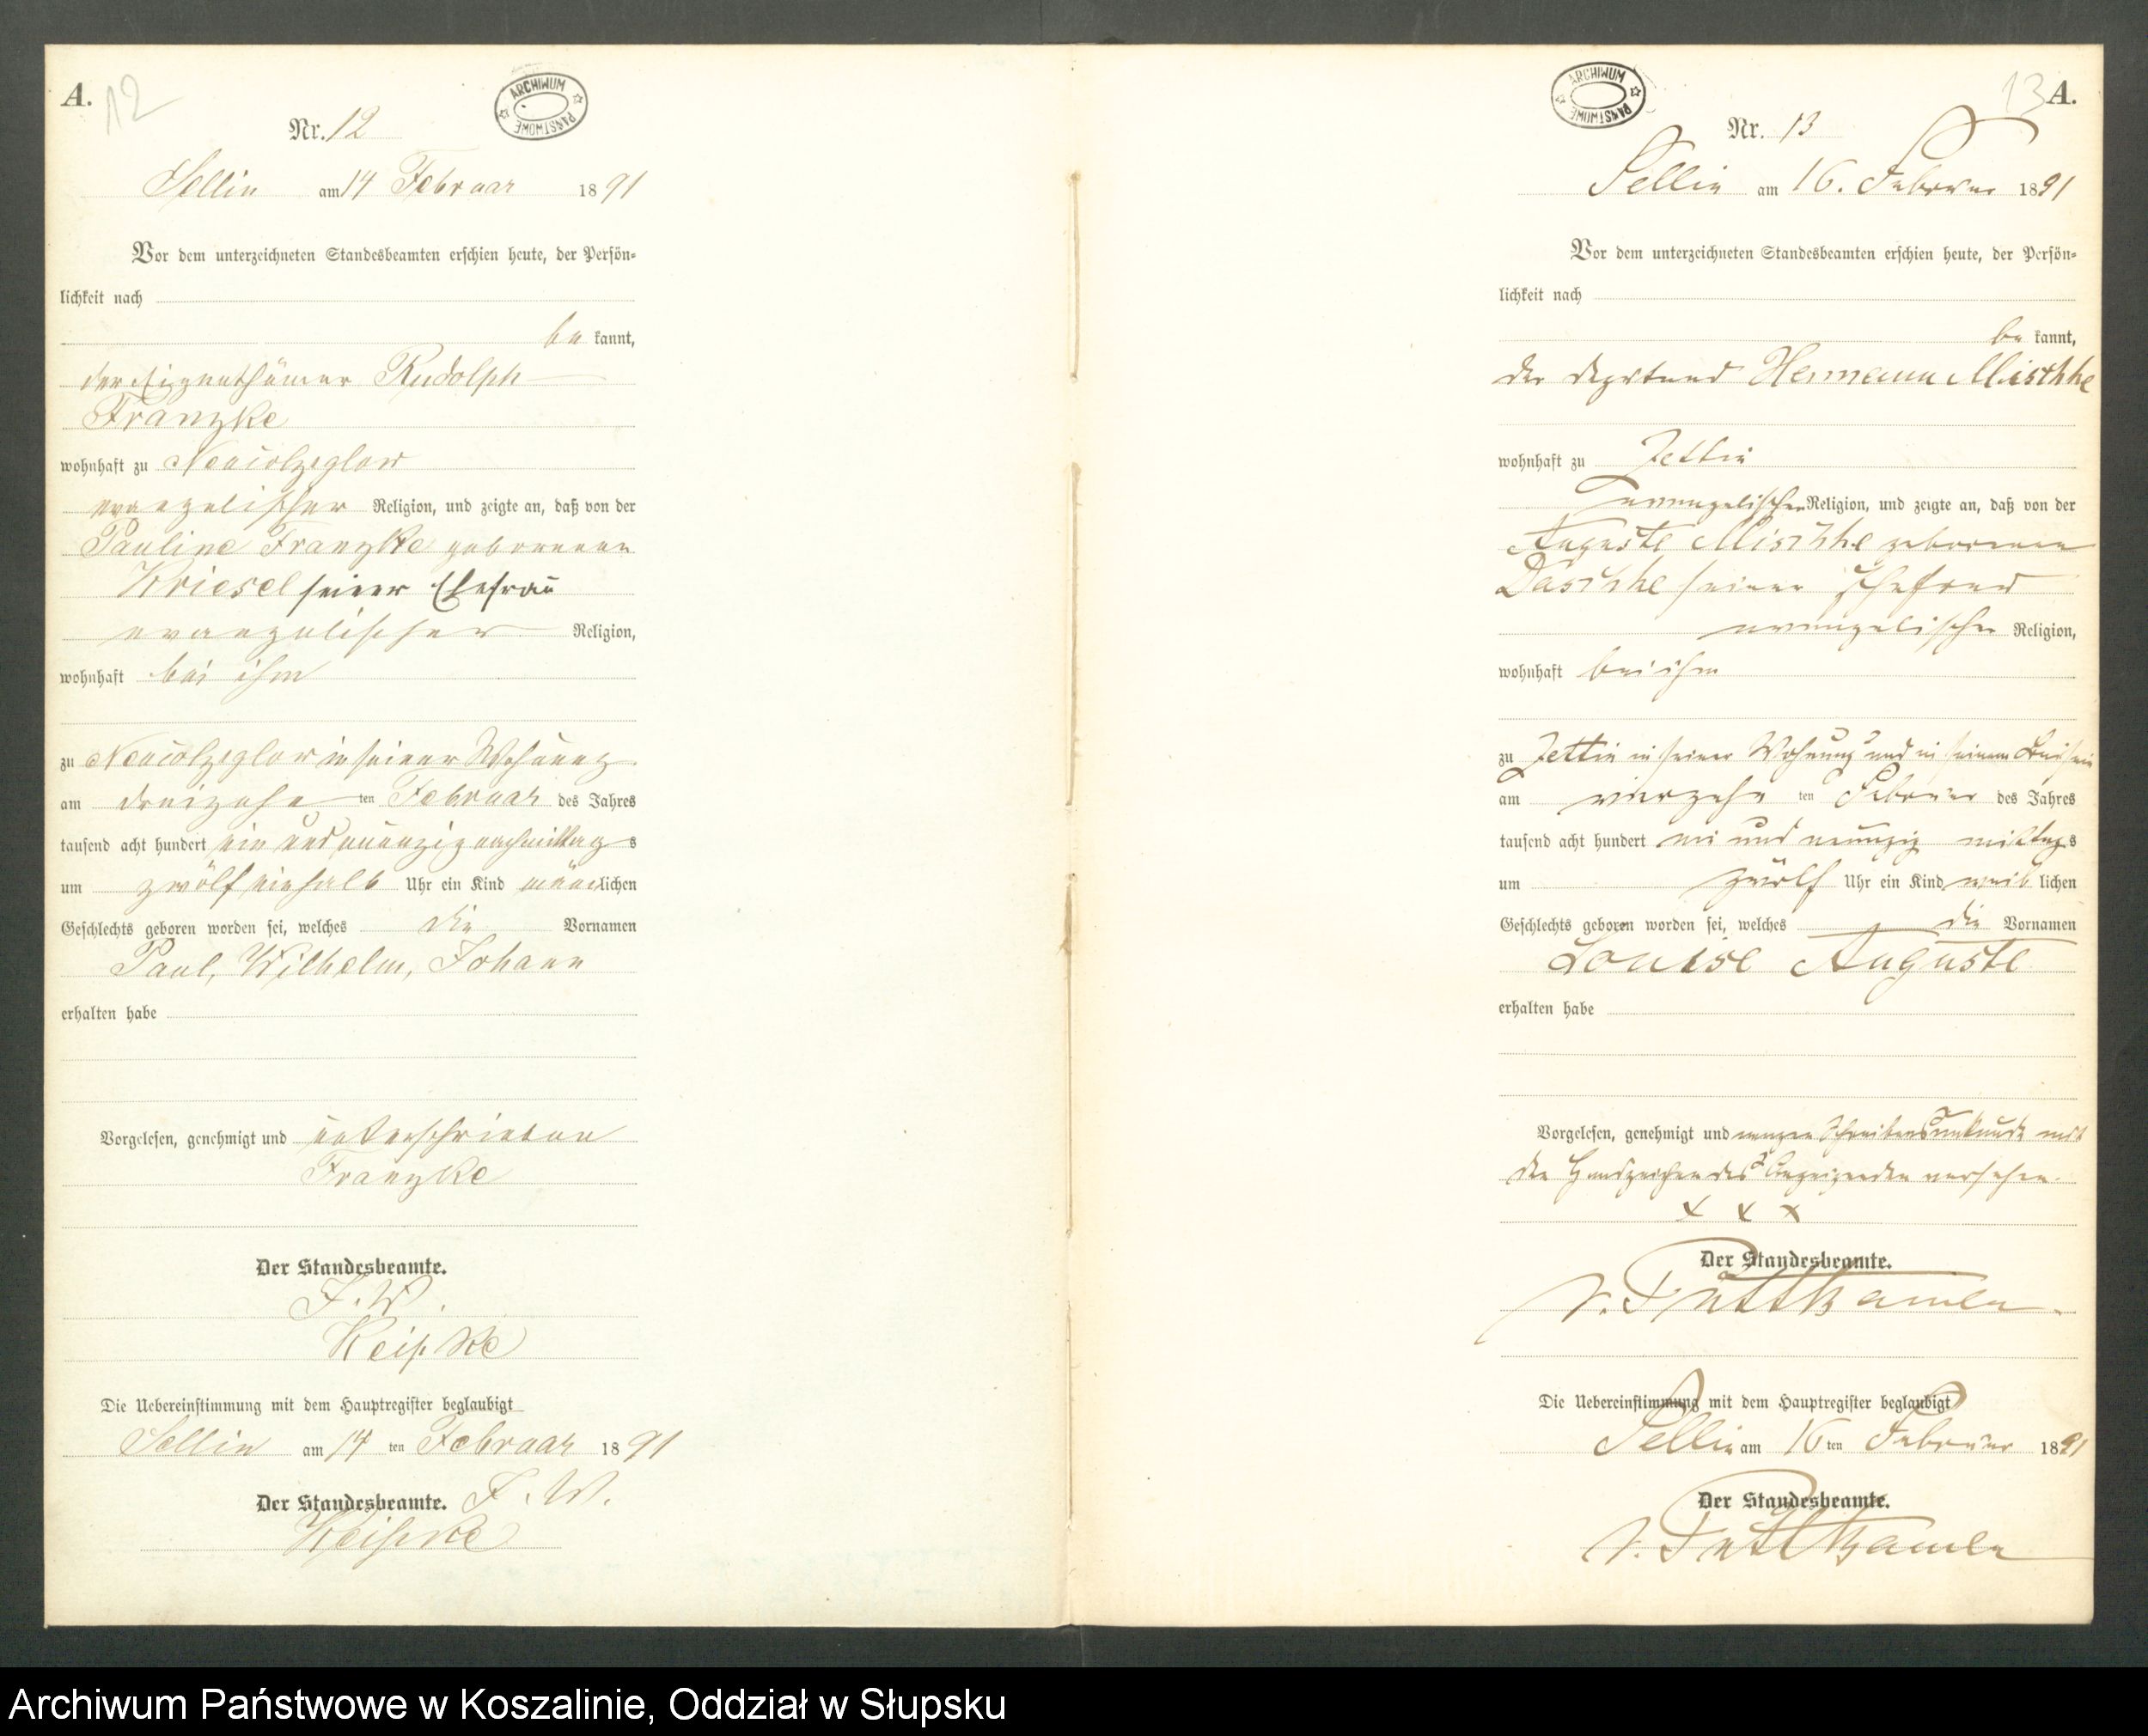 A.
12
ARCHIWUM PAŃSTWOWE
Nr. 12
Sellin am 14 Februar 1891
Vor dem unterzeichneten Standesbeamten erschien heute, der Persön-
lichkeit nach
be kannt,
der Eigenthümer Rudolph
Franzke
wohnhaft zu Neucolziglow
evangelischer Religion, und zeigte an, daß von der
Pauline Franzke geborenen
Kriesel seiner Ehefrau
evangelischer Religion,
wohnhaft bei ihm
zu Neucolziglow in seiner Wohnung
am dreizehn ten Februar des Jahres
tausend acht hundert ein und neunzig nachmittag s
um zwölf einhalb Uhr ein Kind männlichen
Geschlechts geboren worden sei, welches die Vornamen
Paul, Wilhelm, Johann
erhalten habe
Vorgelesen, genehmigt und unterschrieben
Franzke
Der Standesbeamte.
I. V.
Die Uebereinstimmung mit dem Hauptregister beglaubigt
Sellin am 14 ten Februar 1891
Der Standesbeamte. I. V.
13 A.
ARCHIWUM PAŃSTWOWE
Nr. 13
Sellin am 16. Februar 1891
Vor dem unterzeichneten Standesbeamten erschien heute, der Persön-
lichkeit nach
be kannt,
der Deputand Hermann Mischke
wohnhaft zu Zettin
evangelischer Religion, und zeigte an, daß von der
Auguste Mischke geborenen
Daschke seiner Ehefrau
evangelischer Religion,
wohnhaft bei ihm
zu Zettin in seiner Wohnung und in seinem Beisein
am vierzehn ten Februar des Jahres
tausend acht hundert ein und neunzig mittags
um zwölf Uhr ein Kind weib lichen
Geschlechts geboren worden sei, welches die Vornamen
Louise Auguste
erhalten habe
Vorgelesen, genehmigt und wegen Schreibensunkunde mit
den Handzeichen des Anzeigenden versehen.
x x x
Der Standesbeamte.
v. Puttkamer
Die Uebereinstimmung mit dem Hauptregister beglaubigt
Sellin am 16 ten Februar 1891
Der Standesbeamte.
v. Puttkamer
Archiwum Państwowe w Koszalinie, Oddział w Słupsku